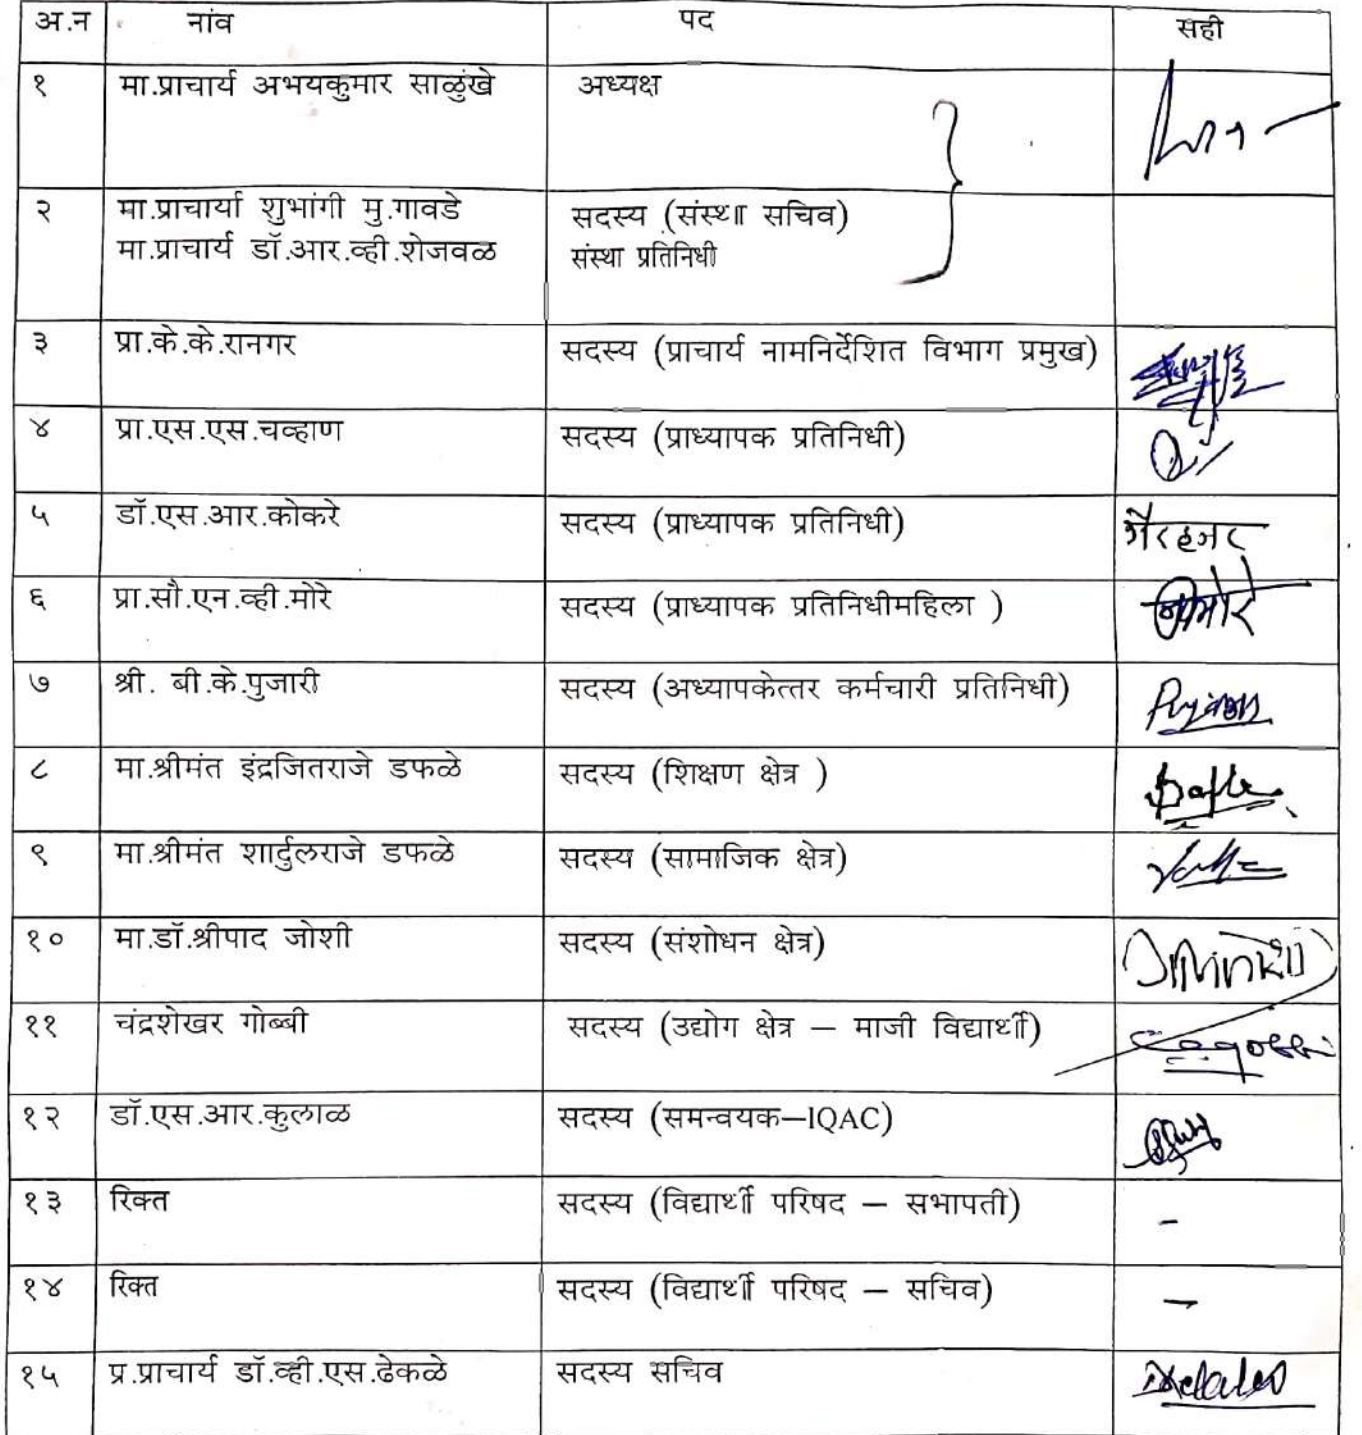 अ.न नांव पद सही
१ मा.प्राचार्य अभयकुमार साळुंखे अध्यक्ष
२ मा.प्राचार्या शुभांगी मु.गावडे सदस्य (संस्था सचिव)
मा.प्राचार्य डॉ.आर.व्ही.शेजवळ संस्था प्रतिनिधी
३ प्रा.के.के.रानगर सदस्य (प्राचार्य नामनिर्देशित विभाग प्रमुख)
४ प्रा.एस.एस.चव्हाण सदस्य (प्राध्यापक प्रतिनिधी)
५ डॉ.एस.आर.कोकरे सदस्य (प्राध्यापक प्रतिनिधी) गैरहजर
६ प्रा.सौ.एन.व्ही.मोरे सदस्य (प्राध्यापक प्रतिनिधीमहिला )
७ श्री. बी.के.पुजारी सदस्य (अध्यापकेत्तर कर्मचारी प्रतिनिधी)
८ मा.श्रीमंत इंद्रजितराजे डफळे सदस्य (शिक्षण क्षेत्र )
९ मा.श्रीमंत शार्दुलराजे डफळे सदस्य (सामाजिक क्षेत्र)
१० मा.डॉ.श्रीपाद जोशी सदस्य (संशोधन क्षेत्र)
११ चंद्रशेखर गोब्बी सदस्य (उद्योग क्षेत्र – माजी विद्यार्थी)
१२ डॉ.एस.आर.कुलाळ सदस्य (समन्वयक–IQAC)
१३ रिक्त सदस्य (विद्यार्थी परिषद – सभापती) -
१४ रिक्त सदस्य (विद्यार्थी परिषद – सचिव) -
१५ प्र.प्राचार्य डॉ.व्ही.एस.ढेकळे सदस्य सचिव